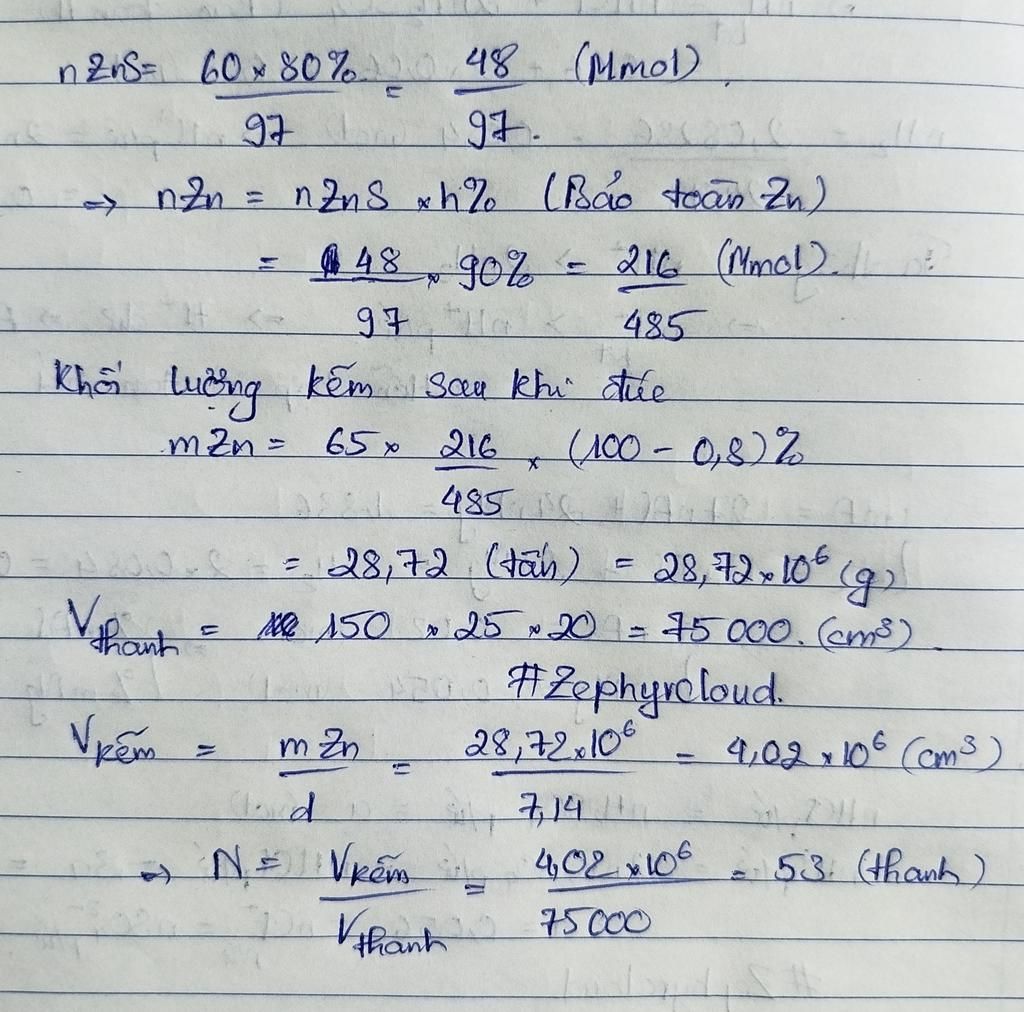 nZnS = 60 × 80% / 97 = 48 / 97 (Mmol).
=> nZn = nZnS × h% (Bảo toàn Zn)
= 48 / 97 × 90% = 216 / 485 (Mmol).
Khối lượng kẽm sau khi đúc
mZn = 65 × 216 / 485 × (100 - 0,8)%
= 28,72 (tấn) = 28,72 × 10⁶ (g)
Vthanh = 150 × 25 × 20 = 75 000. (cm³).
#Zephyrcloud.
Vkẽm = mZn / d = 28,72 × 10⁶ / 7,14 = 4,02 × 10⁶ (cm³)
=> N = Vkẽm / Vthanh = 4,02 × 10⁶ / 75000 = 53 (thanh)